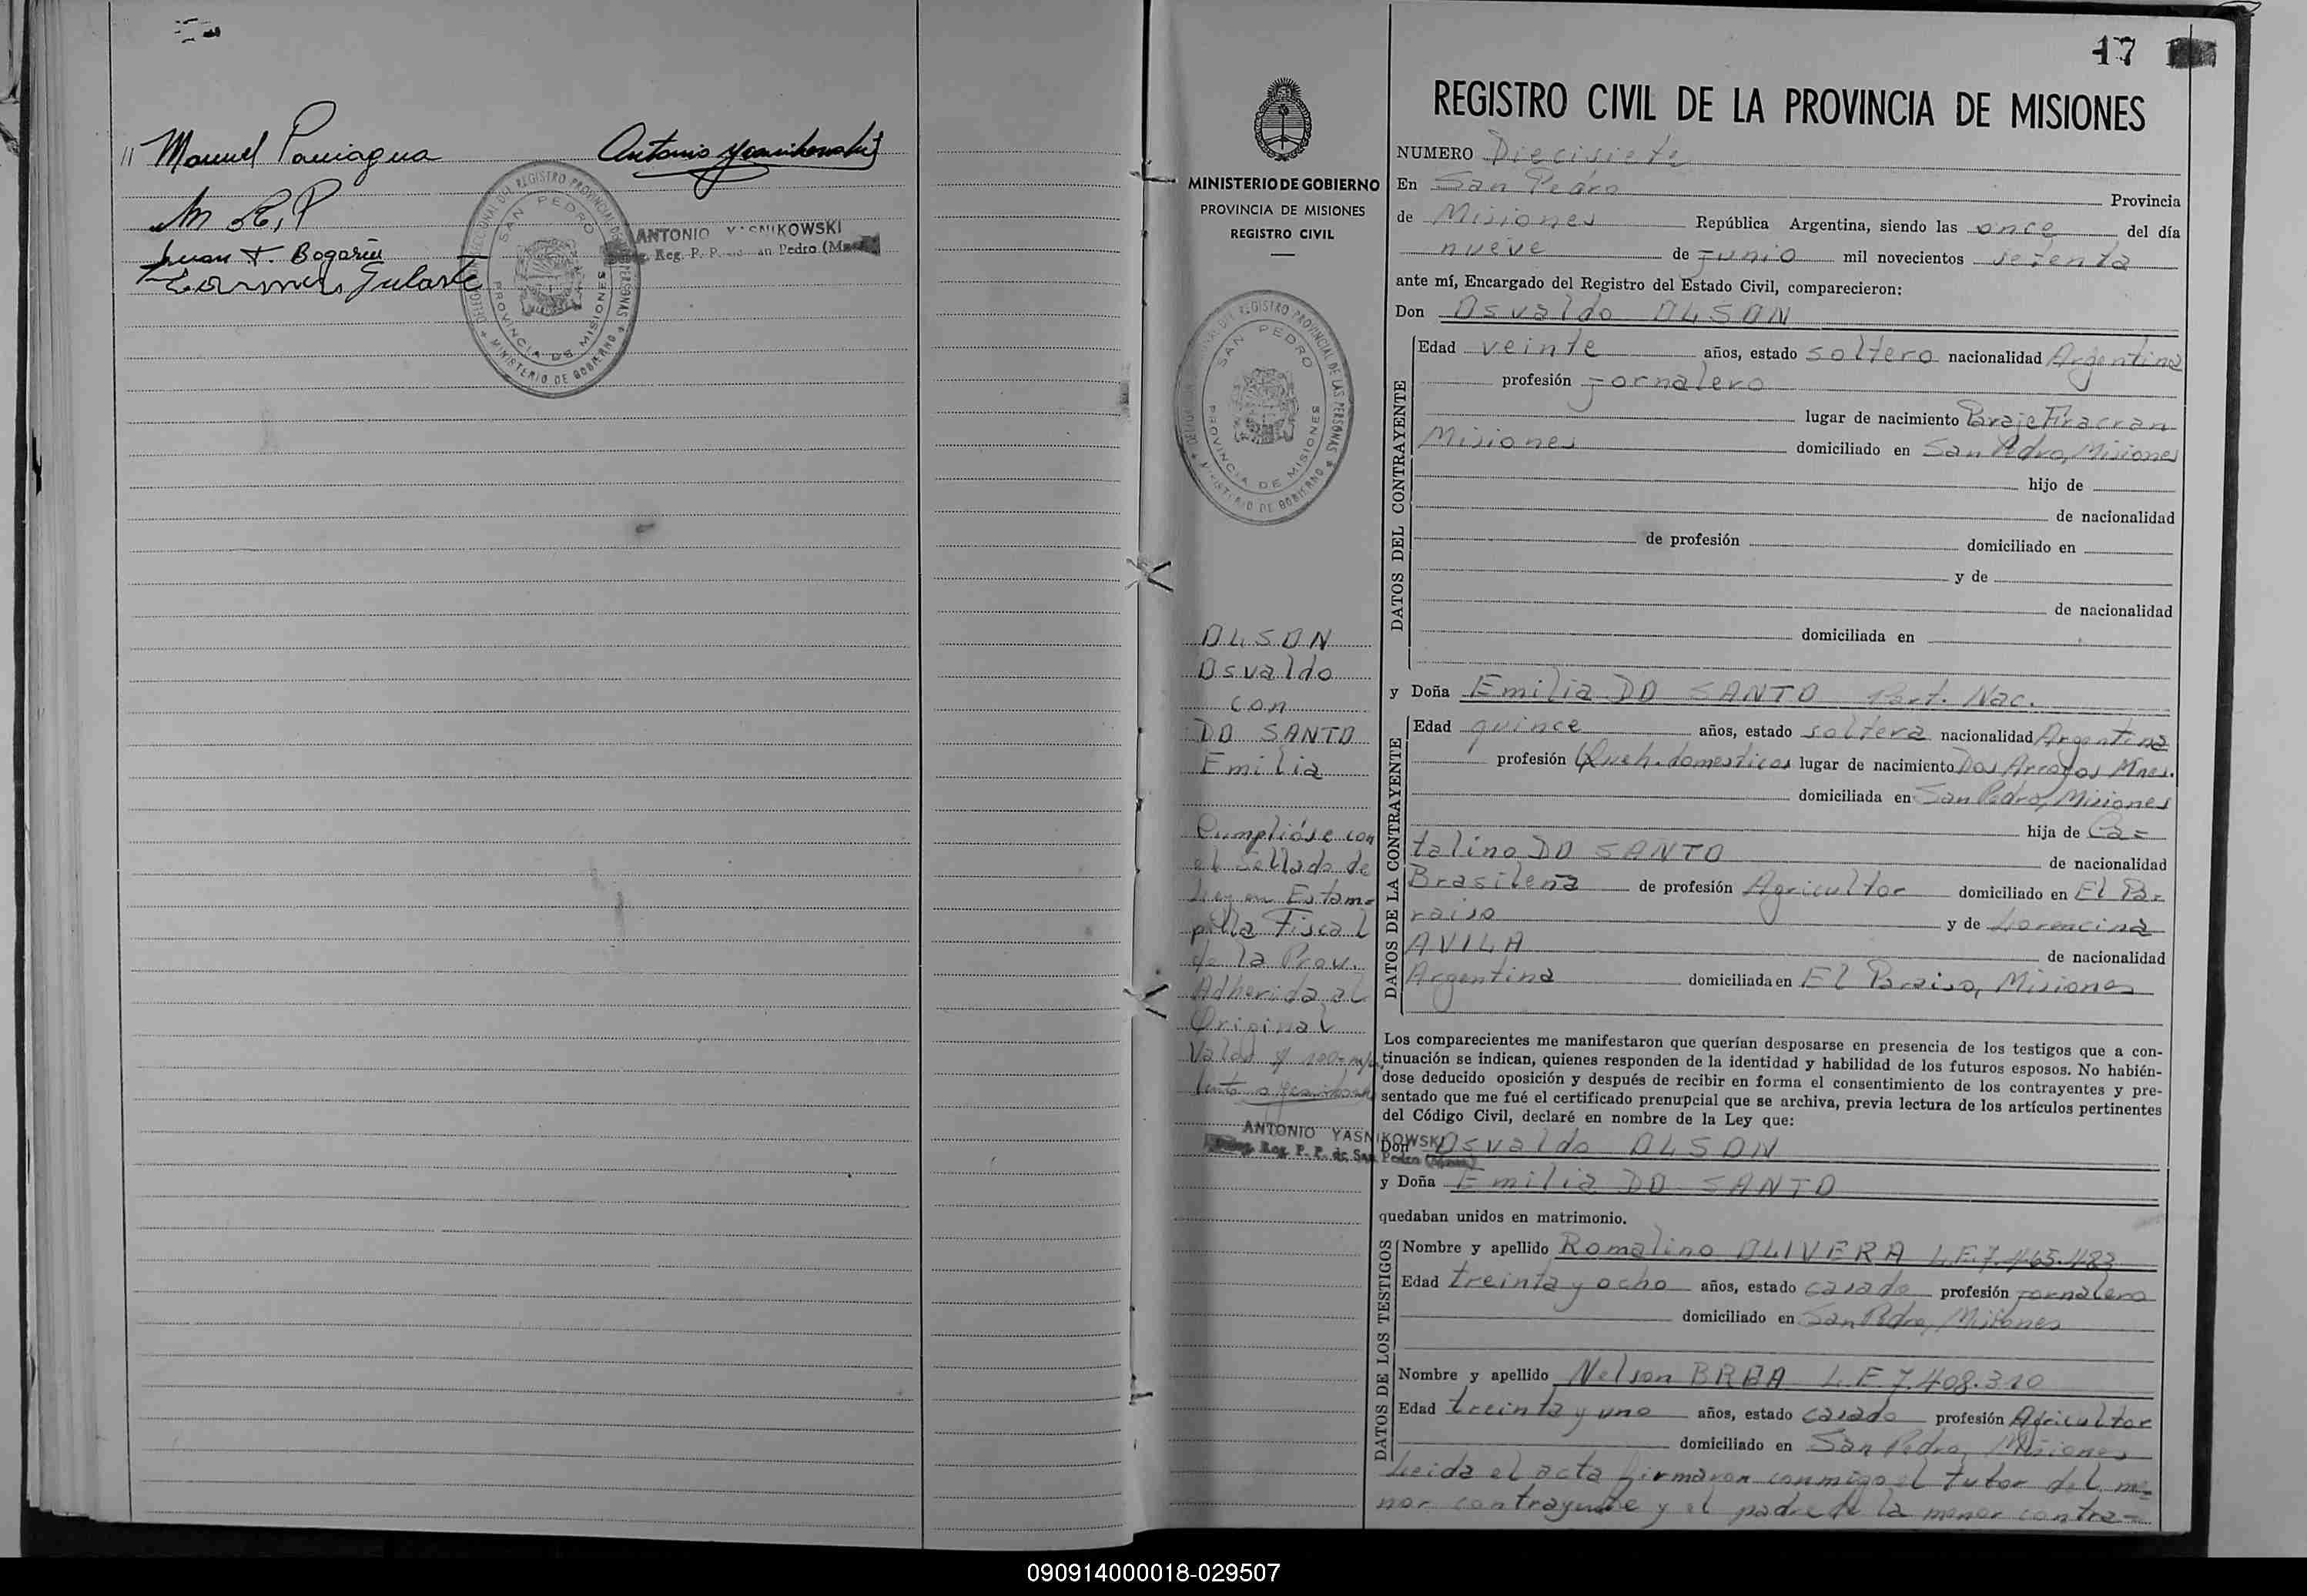 Manuel Paniagua
Antonio Yasnikowski
M R, P
ANTONIO YASNIKOWSKI
Reg. P. P. de San Pedro
Juan F. Bogarin
DELEGACION REGISTRO PROVINCIAL DE LAS PERSONAS
SAN PEDRO
PROVINCIA DE MISIONES
MINISTERIO DE GOBIERNO
MINISTERIO DE GOBIERNO
PROVINCIA DE MISIONES
REGISTRO CIVIL
REGISTRO PROVINCIAL DE LAS PERSONAS
SAN PEDRO
PROVINCIA DE MISIONES
MINISTERIO DE GOBIERNO
OLSON
Osvaldo
con
DO SANTO
Emilia
Cumplióse con
el Sellado de
Ley en Estam=
pilla Fiscal
de la Prov.
Adherida al
Original
ANTONIO YASNIKOWSKI
Reg. P. P. de San Pedro
17
REGISTRO CIVIL DE LA PROVINCIA DE MISIONES
NUMERO Diecisiete
En San Pedro Provincia
de Misiones República Argentina, siendo las once del día
nueve de Junio mil novecientos setenta
ante mí, Encargado del Registro del Estado Civil, comparecieron:
Don Osvaldo OLSON
DATOS DEL CONTRAYENTE
Edad veinte años, estado soltero nacionalidad Argentina
profesión Jornalero
lugar de nacimiento Paraje Fracran
Misiones domiciliado en San Pedro, Misiones
hijo de
de nacionalidad
de profesión domiciliado en
y de
de nacionalidad
domiciliada en
y Doña Emilia DO SANTO Part. Nac.
DATOS DE LA CONTRAYENTE
Edad quince años, estado soltera nacionalidad Argentina
profesión Queh. domesticos lugar de nacimiento Dos Arroyos Mnes.
domiciliada en San Pedro, Misiones
hija de Ca=
talino DO SANTO de nacionalidad
Brasileña de profesión Agricultor domiciliado en El Pa=
raiso y de Lorencina
AVILA de nacionalidad
Argentina domiciliada en El Paraiso, Misiones
Los comparecientes me manifestaron que querían desposarse en presencia de los testigos que a con-
tinuación se indican, quienes responden de la identidad y habilidad de los futuros esposos. No habién-
dose deducido oposición y después de recibir en forma el consentimiento de los contrayentes y pre-
sentado que me fué el certificado prenupcial que se archiva, previa lectura de los artículos pertinentes
del Código Civil, declaré en nombre de la Ley que:
Don Osvaldo OLSON
y Doña Emilia DO SANTO
quedaban unidos en matrimonio.
DATOS DE LOS TESTIGOS
Nombre y apellido Romalino OLIVERA L.E. 7.465.483
Edad treinta y ocho años, estado casado profesión jornalero
domiciliado en San Pedro, Misiones
Nombre y apellido Nelson BRBA L.E. 7.408.310
Edad treinta y uno años, estado casado profesión Agricultor
domiciliado en San Pedro, Misiones
Leida el acta firmaron conmigo el tutor del me=
nor contrayente y el padre de la menor contra=
090914000018-029507